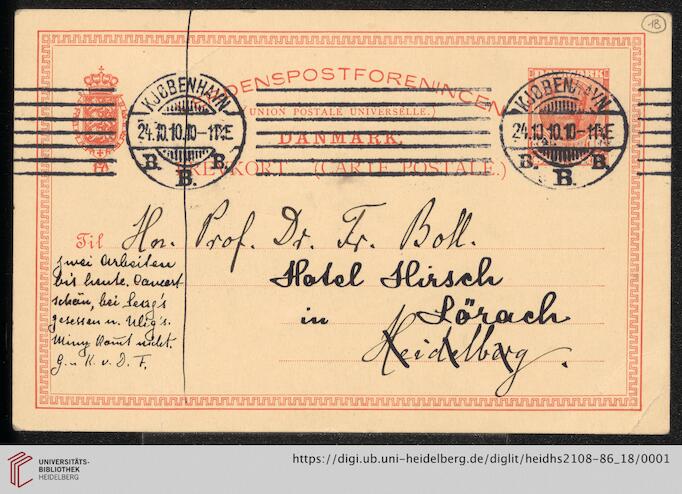 18
VERDENSPOSTFORENINGEN
(UNION POSTALE UNIVERSELLE.)
DANMARK.
BREVKORT (CARTE POSTALE.)
DANMARK
KJØBENHAVN
24.10.10.10-11 E
B. B. B.
KJØBENHAVN
24.10.10.10-11 E
B. B. B.
Til Hn. Prof. Dr. Fr. Boll.
Hotel Hirsch
in Lörach
Heidelberg.
zwei Arbeiten
bis heute. Concert
schön, bei
gesessen u. Uhlig's.
Miny kommt nicht.
G. u K. v. D. F.
UNIVERSITÄTS-
BIBLIOTHEK
HEIDELBERG
https://digi.ub.uni-heidelberg.de/diglit/heidhs2108-86_18/0001